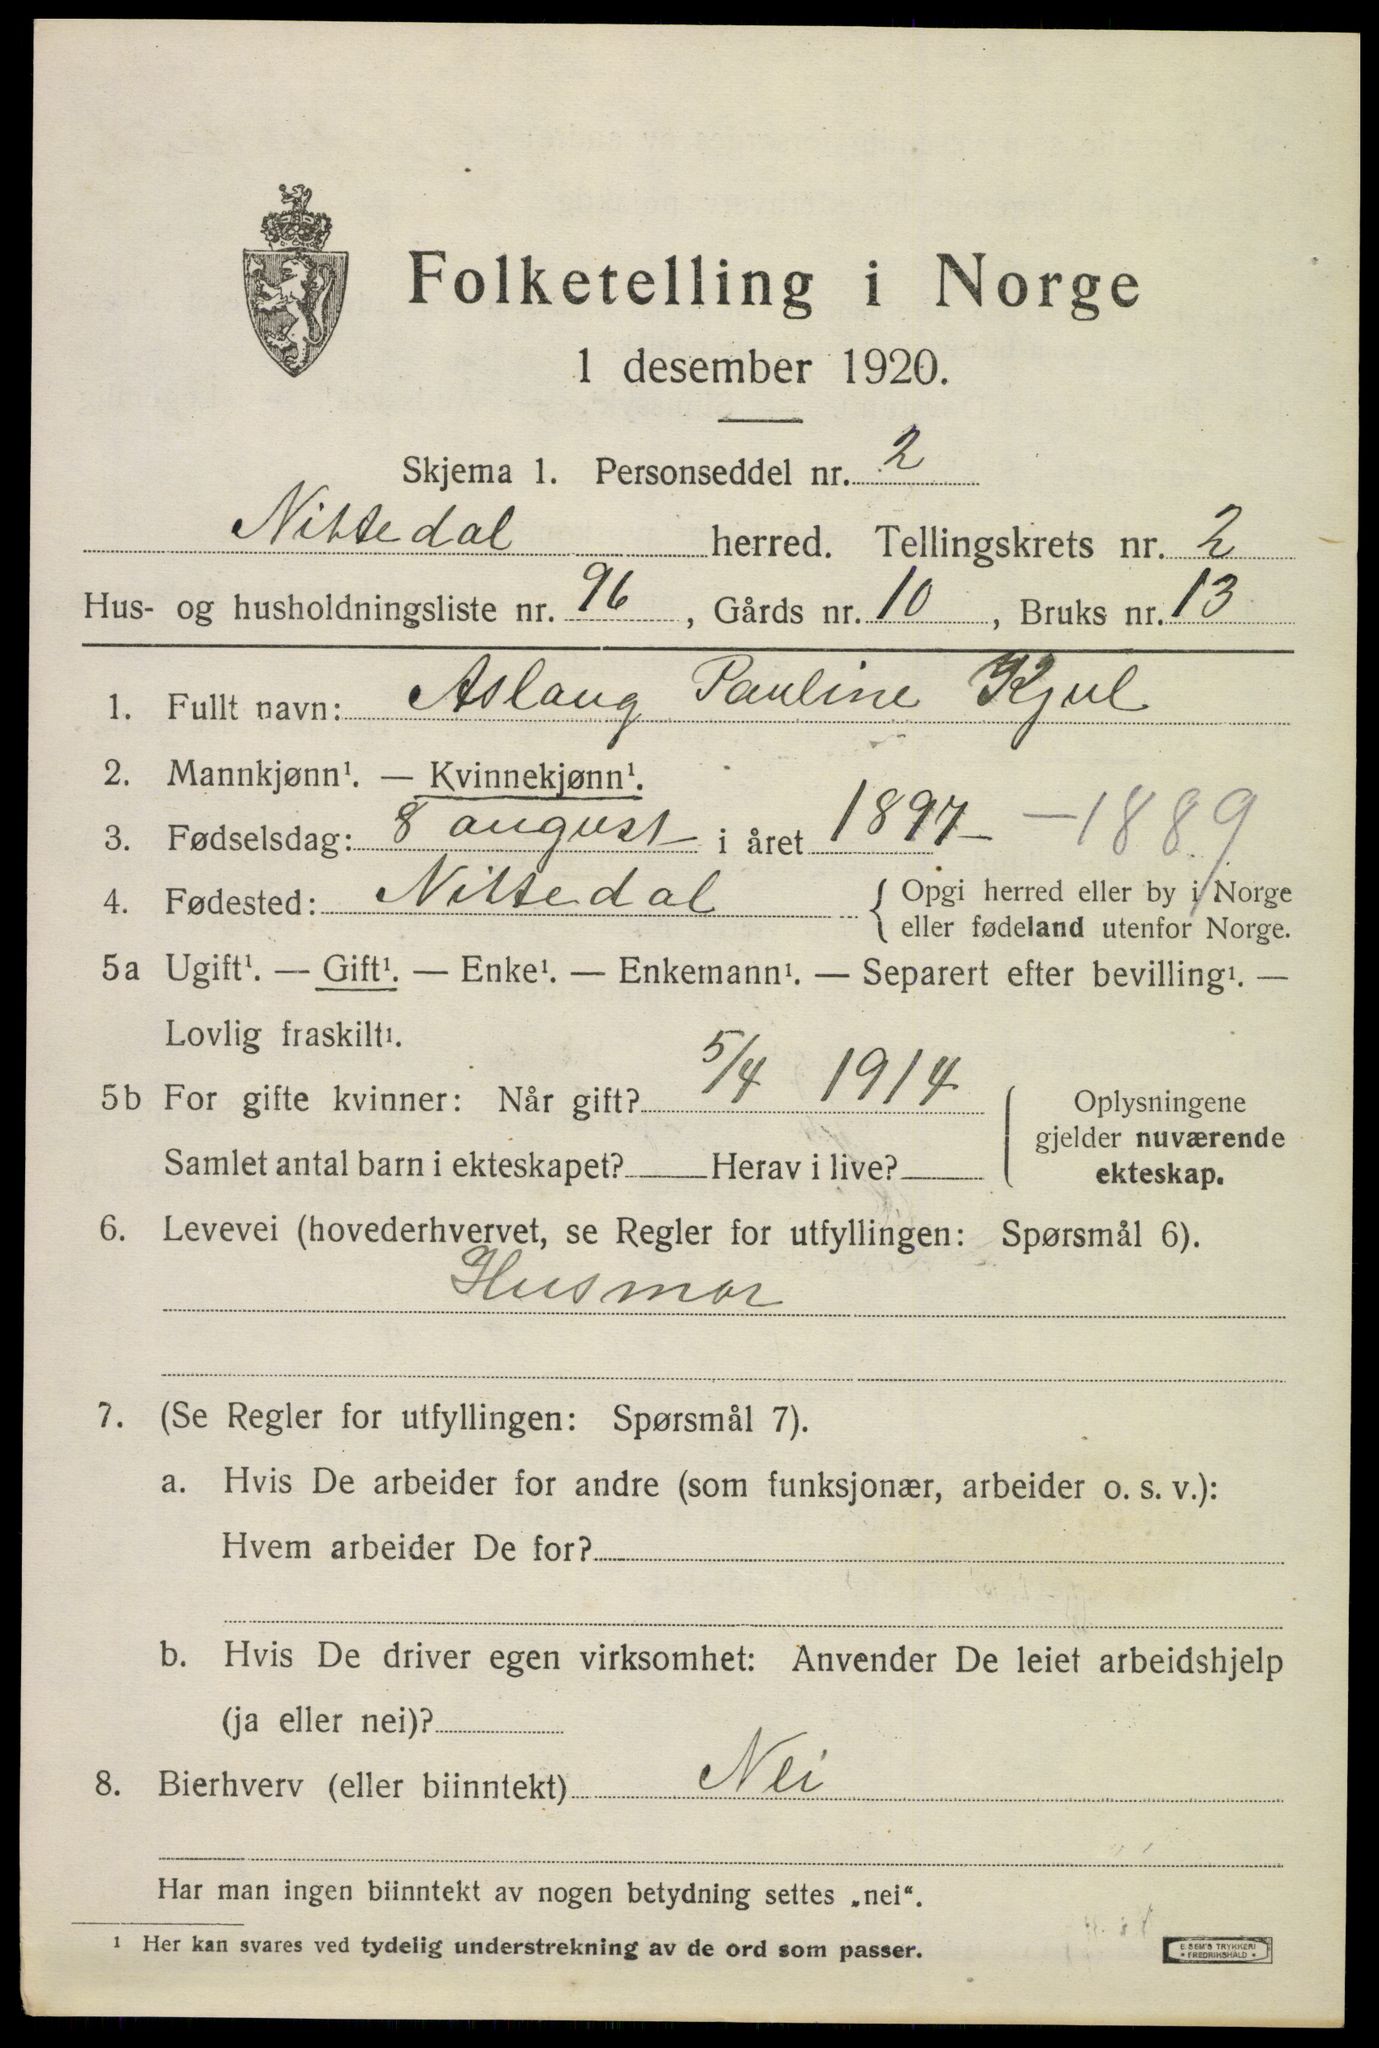 Folketelling i Norge
1 desember 1920.
Skjema 1. Personseddel nr. 2
Nittedal herred. Tellingskrets nr. 2
Hus- og husholdningsliste nr. 96, Gårds nr. 10, Bruks nr. 13
1. Fullt navn: Aslaug Pauline Kjul
2. Mannkjønn¹. — Kvinnekjønn¹.
3. Fødselsdag: 8 august i året 1897 — 1889
4. Fødested: Nittedal { Opgi herred eller by i Norge
eller fødeland utenfor Norge.
5a Ugift¹. — Gift¹. — Enke¹. — Enkemann¹. — Separert efter bevilling¹. —
Lovlig fraskilt¹.
5b For gifte kvinner: Når gift? 5/4 1914
Samlet antal barn i ekteskapet? Herav i live?
Oplysningene
gjelder nuværende
ekteskap.
6. Levevei (hovederhvervet, se Regler for utfyllingen: Spørsmål 6).
Husmor
7. (Se Regler for utfyllingen: Spørsmål 7).
a. Hvis De arbeider for andre (som funksjonær, arbeider o. s. v.):
Hvem arbeider De for?
b. Hvis De driver egen virksomhet: Anvender De leiet arbeidshjelp
(ja eller nei)?
8. Bierhverv (eller biinntekt) Nei
Har man ingen biinntekt av nogen betydning settes „nei“.
¹ Her kan svares ved tydelig understrekning av de ord som passer.
E. SEM'S TRYKKERI
* FREDRIKSHALD *